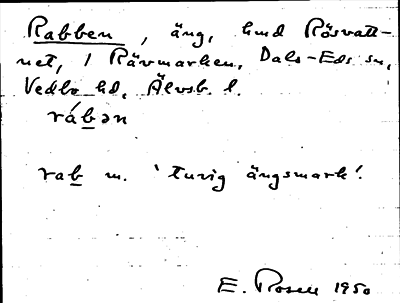 Rabben, äng, hmd Rösvatt-
net, / Rävmarken, Dals-Eds sn,
Vedbo hd, Älvsb. l.
rábən
rab m. 'tuvig ängsmark'.
E. Rosell 1950